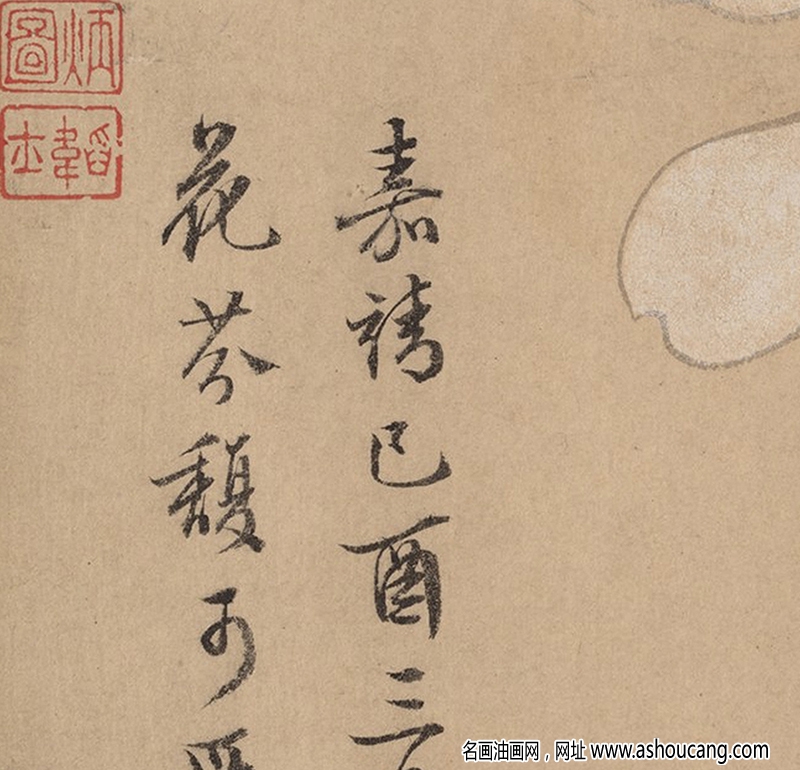 嘉靖己酉三
花芬馥可
名画油画网，网址 www.ashoucang.com